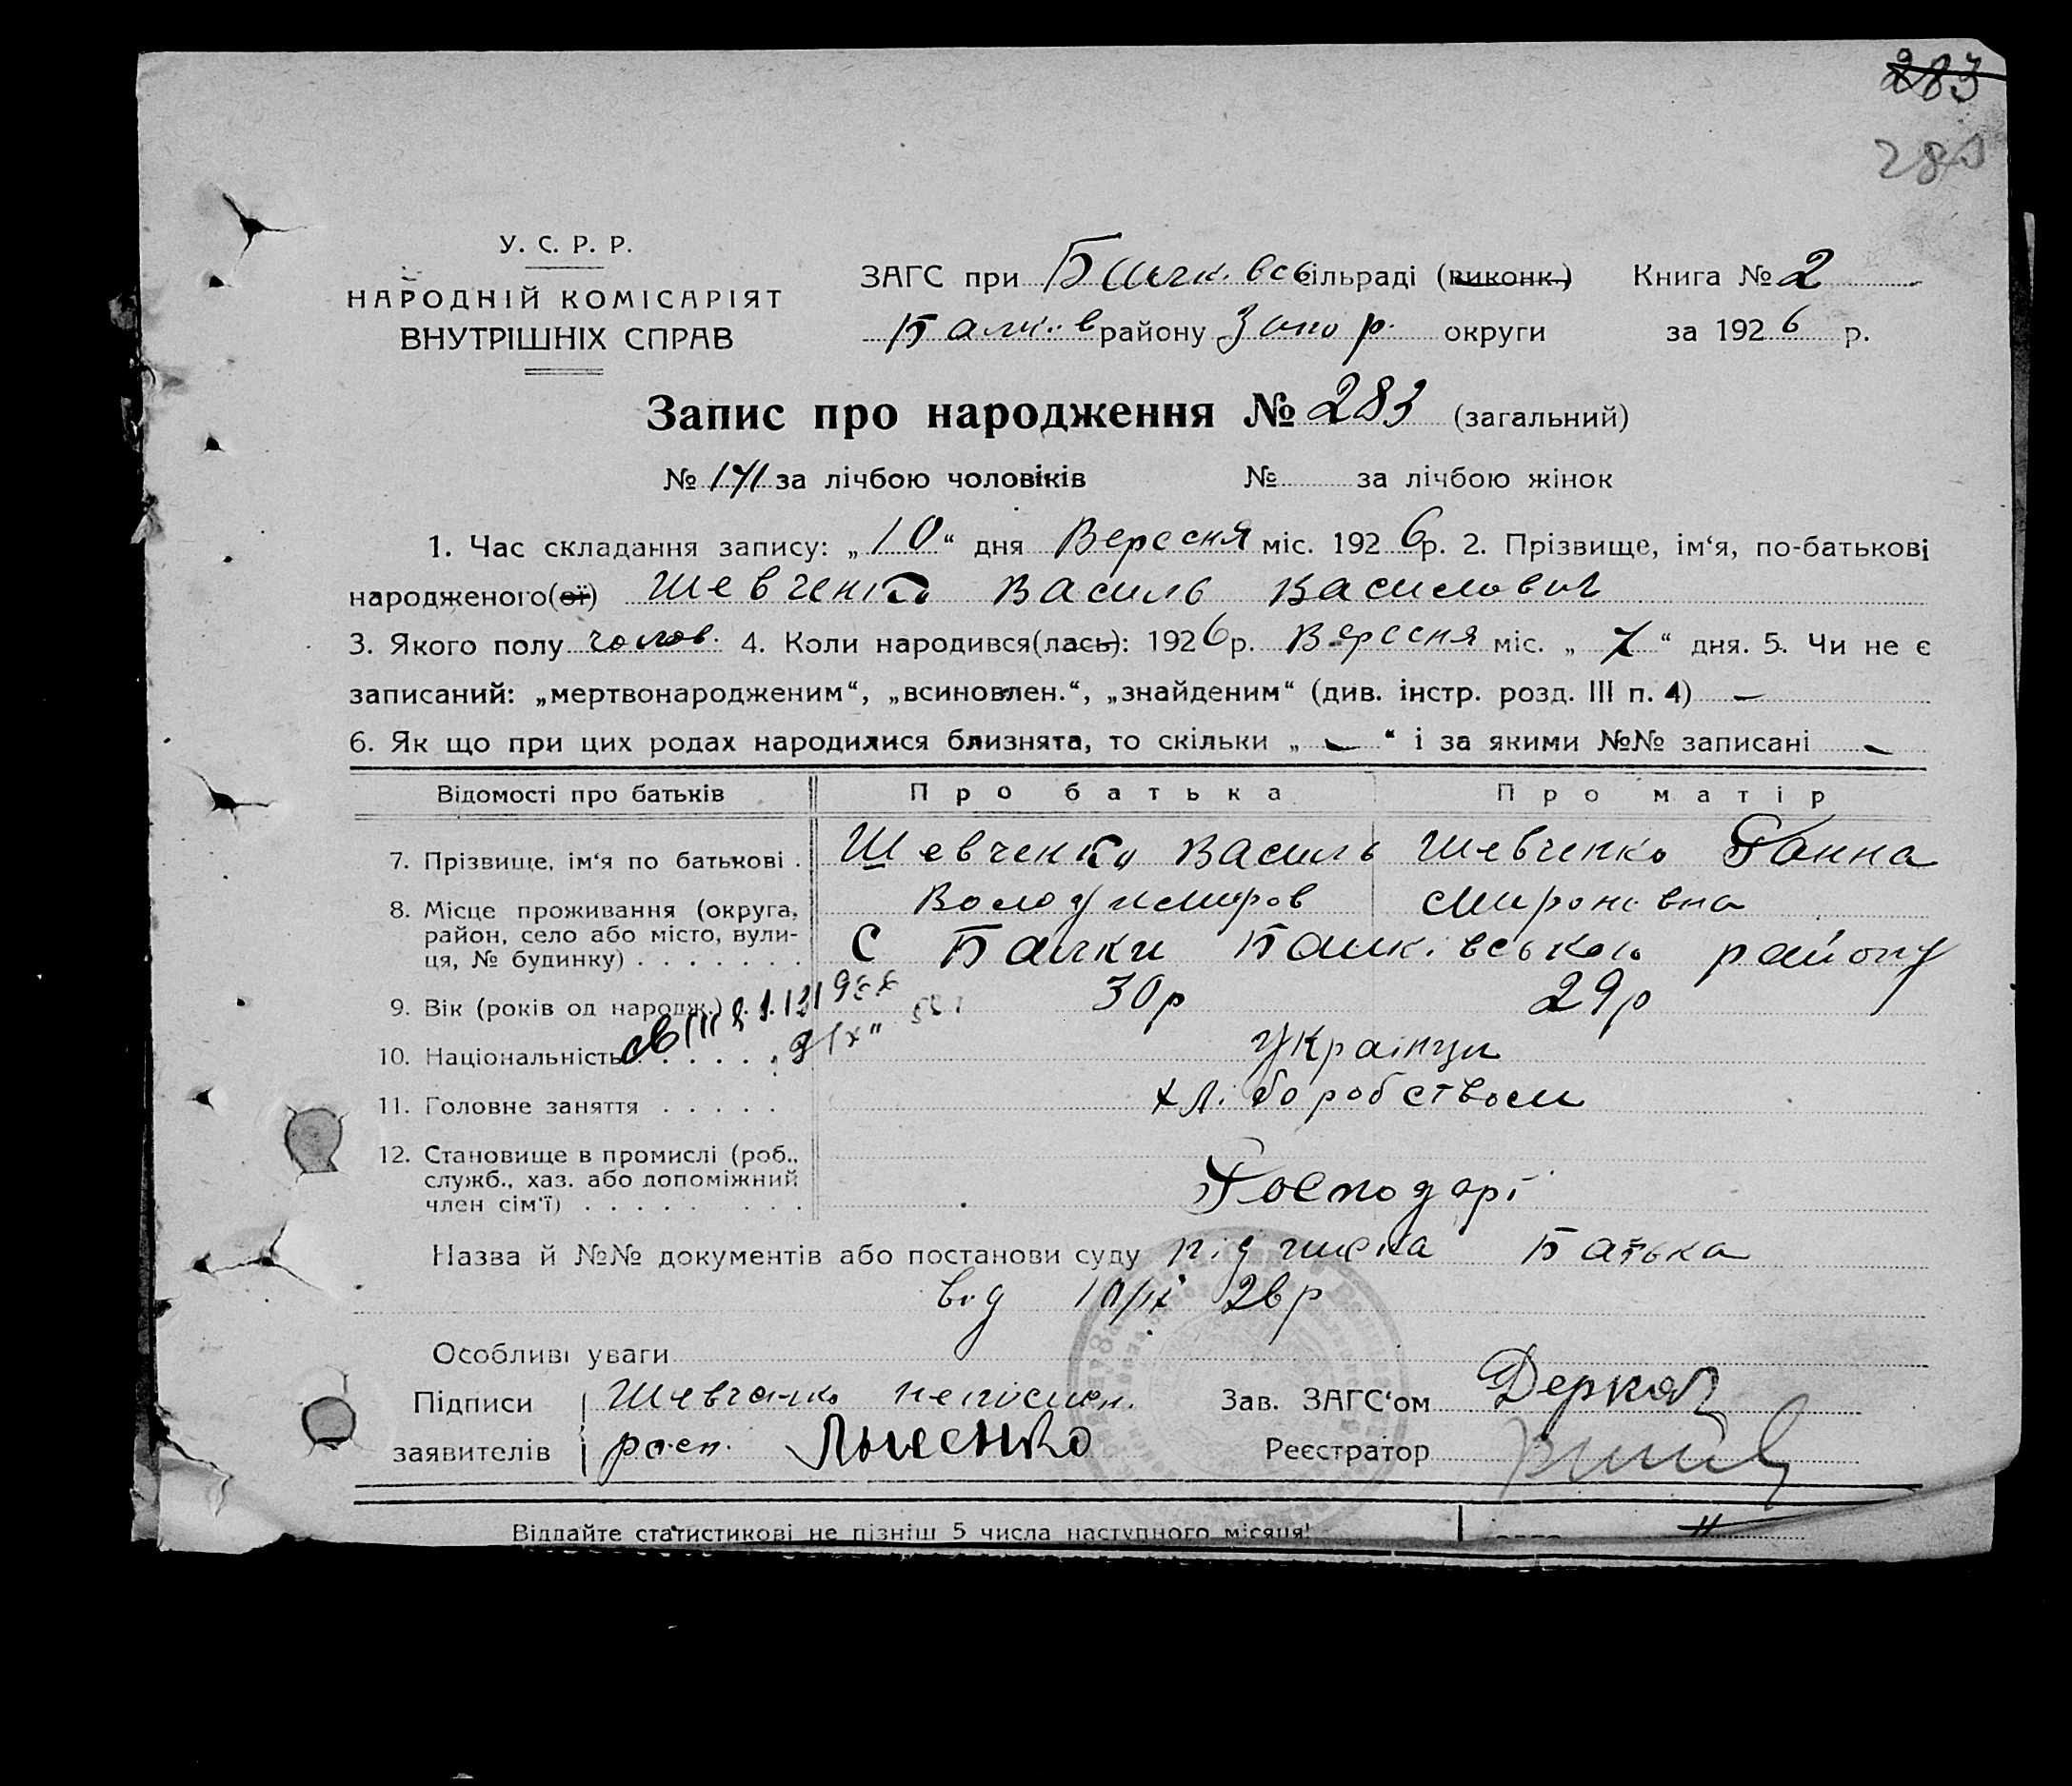 283
283
У. С. Р. Р.
НАРОДНІЙ КОМІСАРІЯТ
ВНУТРІШНІХ СПРАВ
ЗАГС при Балк. всь сільраді (виконк.) Книга № 2
Балк. в району Запор. округи за 1926 р.
Запис про народження № 283 (загальний)
№ 141 за лічбою чоловіків № за лічбою жінок
1. Час складання запису: „10“ дня Вересня міс. 1926 р. 2. Прізвище, ім‘я, по-батькові
народженого(ої) Шевченко Василь Василович
3. Якого полу чолов. 4. Коли народився(лась): 1926 р. Вересня міс. „7“ дня. 5. Чи не є
записаний: „мертвонародженим“, „всиновлен.“, „знайденим“ (див. інстр. розд. III п. 4) —
6. Як що при цих родах народилися близнята, то скільки „—“ і за якими №№ записані —
Відомості про батьків Про батька Про матір
7. Прізвище, ім‘я по батькові . Шевченко Василь Шевченко Ганна
Володимиров Миронівна
8. Місце проживання (округа, район, село або місто, вулиця, № будинку) . . . . . . . С Балки Балківського району
9. Вік (років од народж.) . . . 30р 29р
10. Національність . . . . . . Українци
11. Головне заняття . . . . . хліборобством
12. Становище в промислі (роб., служб., хаз. або допоміжний член сім‘ї) . . . . . . . . Господарі
Назва й №№ документів або постанови суду підписка Батька
від 10/IX 26р
Особливі уваги
Підписи Шевченко неписмен. Зав. ЗАГС‘ом Деркач
заявителів расп. Лысенко Реєстратор
Віддайте статистикові не пізніш 5 числа наступного місяця!